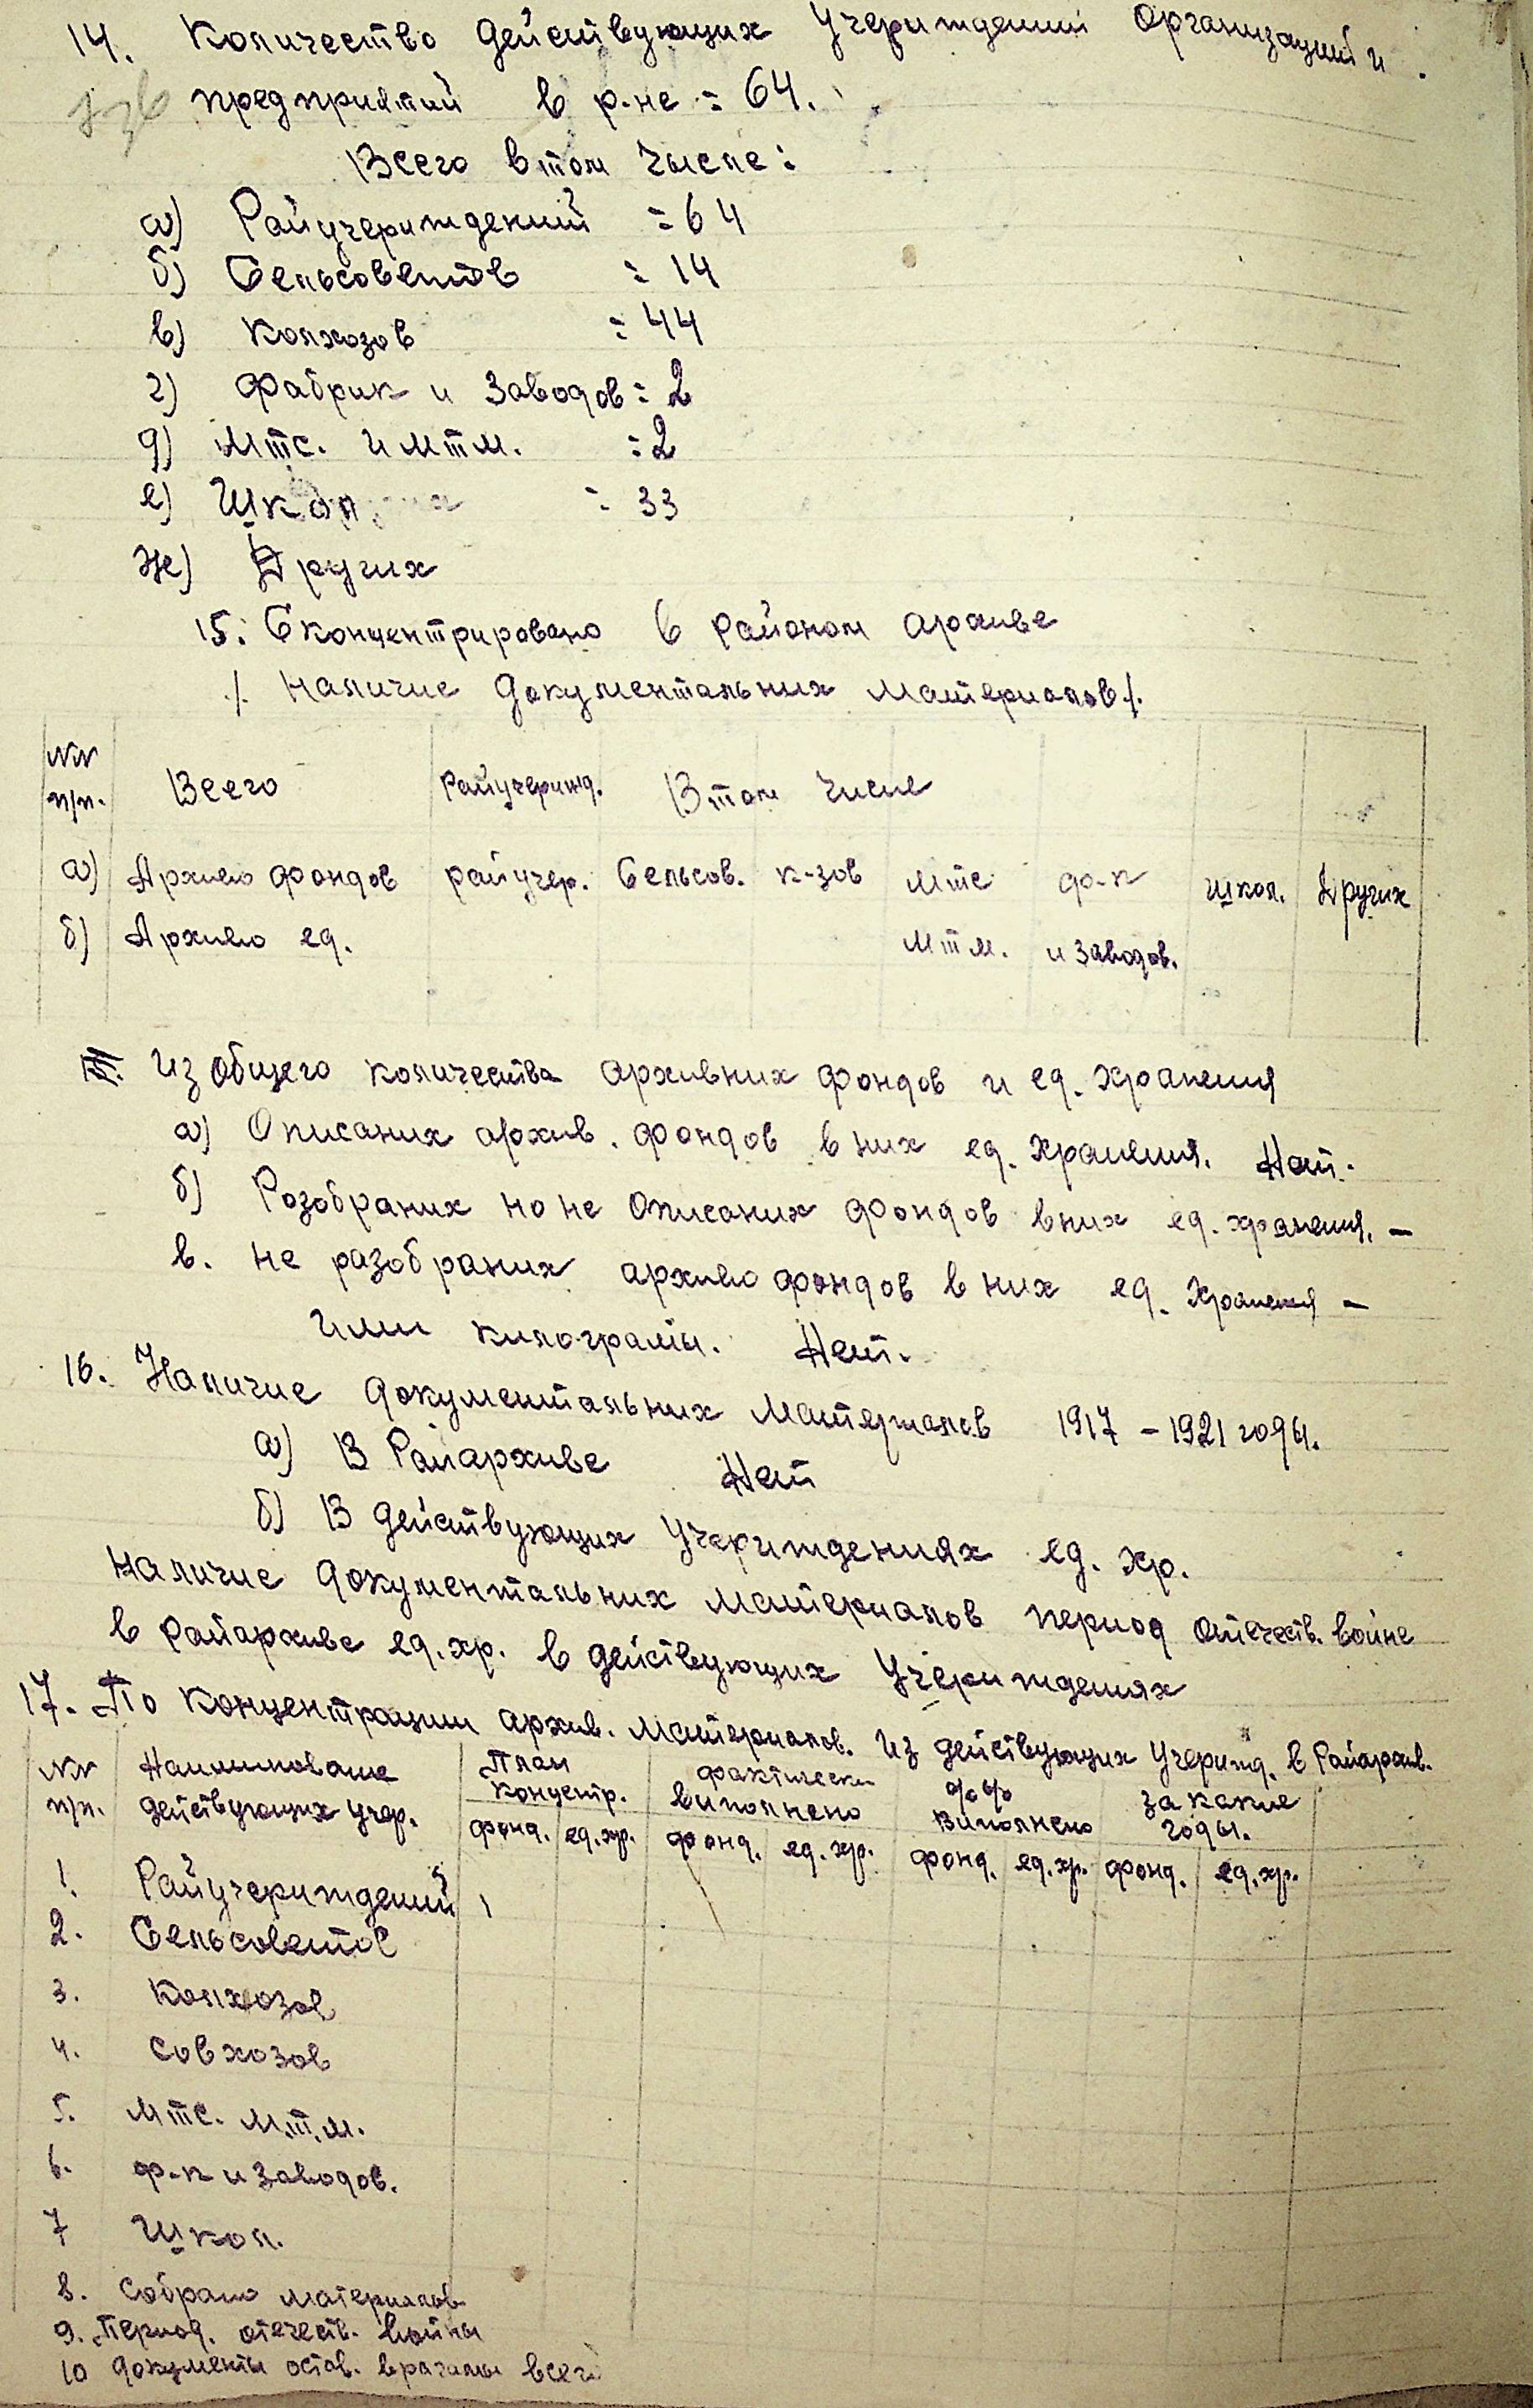 14. Количество действующих учериждений организаций и
предприятий в р-не = 64.
Всего в том числе:
а) Райучериждений = 64
б) Сельсоветов = 14
в) Колхозов = 44
г) Фабрик и заводов = 2
д) Мтс. и мтм. = 2
е) Школ = 33
же) Других
15. Сконцентрировано в районом архиве
/. Наличие документальних материалов/.
NN п/п. Всего Райучерижд. В том числе
а) Архиво фондов райучер. Сельсов. к-зов мтс ф-к школ. Других
б) Архиво ед. мтм. и заводов.
III. Из общего количества архивних фондов и ед. хранения
а) Описаних архив. фондов в них ед. хранения. Нет.
б) Розобраних но не описаних фондов в них ед. хранения. –
в. не разобраних архиво фондов в них ед. хранения –
или килограмы. Нет.
16. Наличие документальних материалов 1917 – 1921 годы.
а) В Райархиве Нет
б) В действующих учериждениях ед. хр.
Наличие документальних материалов период отечеств. войне
в райархиве ед. хр. в действующих учериждениях
17. По концентрации архив. материалов. из действующих учерижд. в Райархив.
NN Наименование План фактически % % за какие
п/п. действующих учер. концентр. виполнено виполнено годы.
фонд. ед. хр. фонд. ед. хр. фонд. ед. хр. фонд. ед. хр.
1. Райучериждений
2. Сельсоветов
3. Колхозов
4. Совхозов
5. Мтс. м.т.м.
6. ф-к и заводов.
7 Школ.
8. Собрано материалов
9. Период. отечеств. войны
10 документы остав. врагами всего